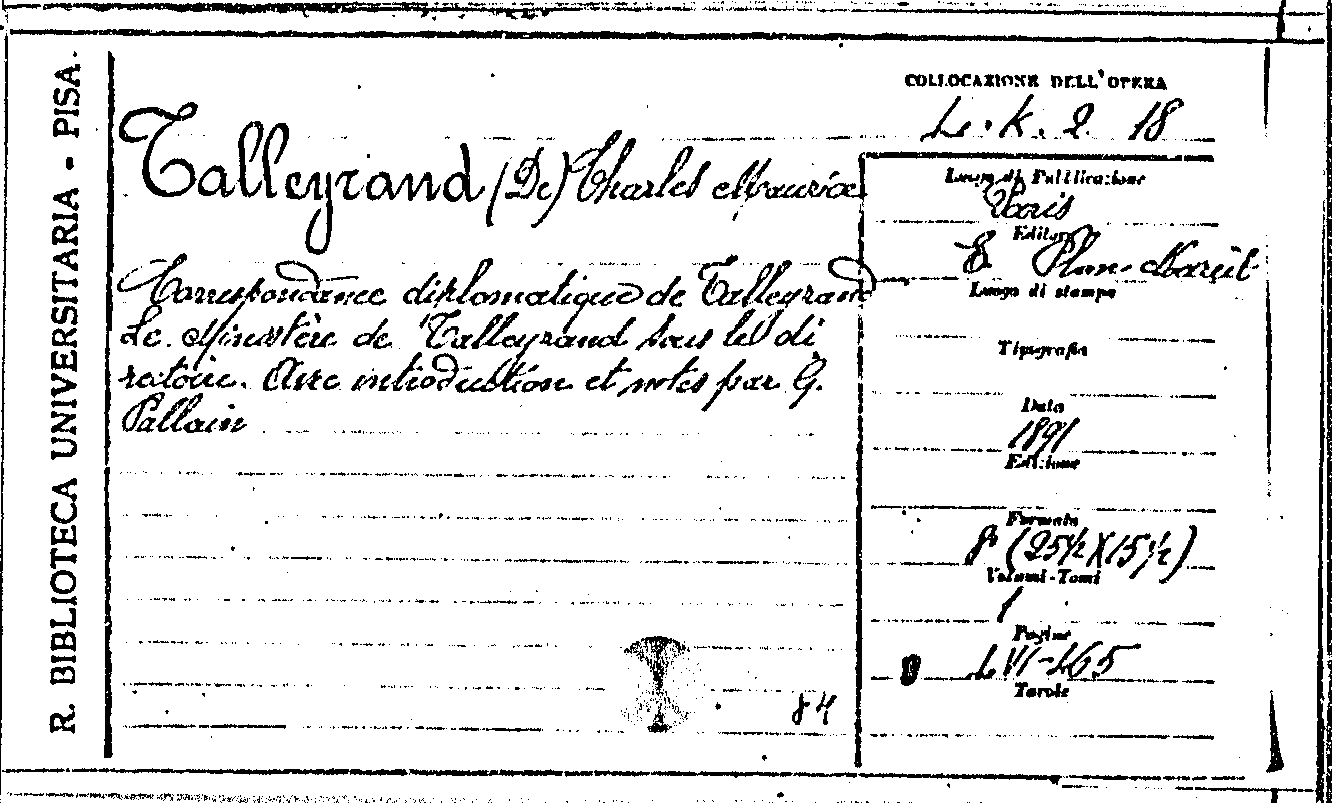 R. BIBLIOTECA UNIVERSITARIA - PISA.
COLLOCAZIONE DELL'OPERA
L. K. 2. 18
Talleyrand (De) Charles Maurice
Correspondance diplomatique de Talleyrand
Le Ministère de Talleyrand sous le di
rectoire. Avec introduction et notes par G.
Pallain
84
Luogo di Pubblicazione
Paris
Editore
E. Plon-Nourrit
Luogo di stampa
Tipografia
Data
1891
Edizione
Formato
8° (25½ X 15½)
Volumi-Tomi
1
Pagine
LVI-465
Tavole